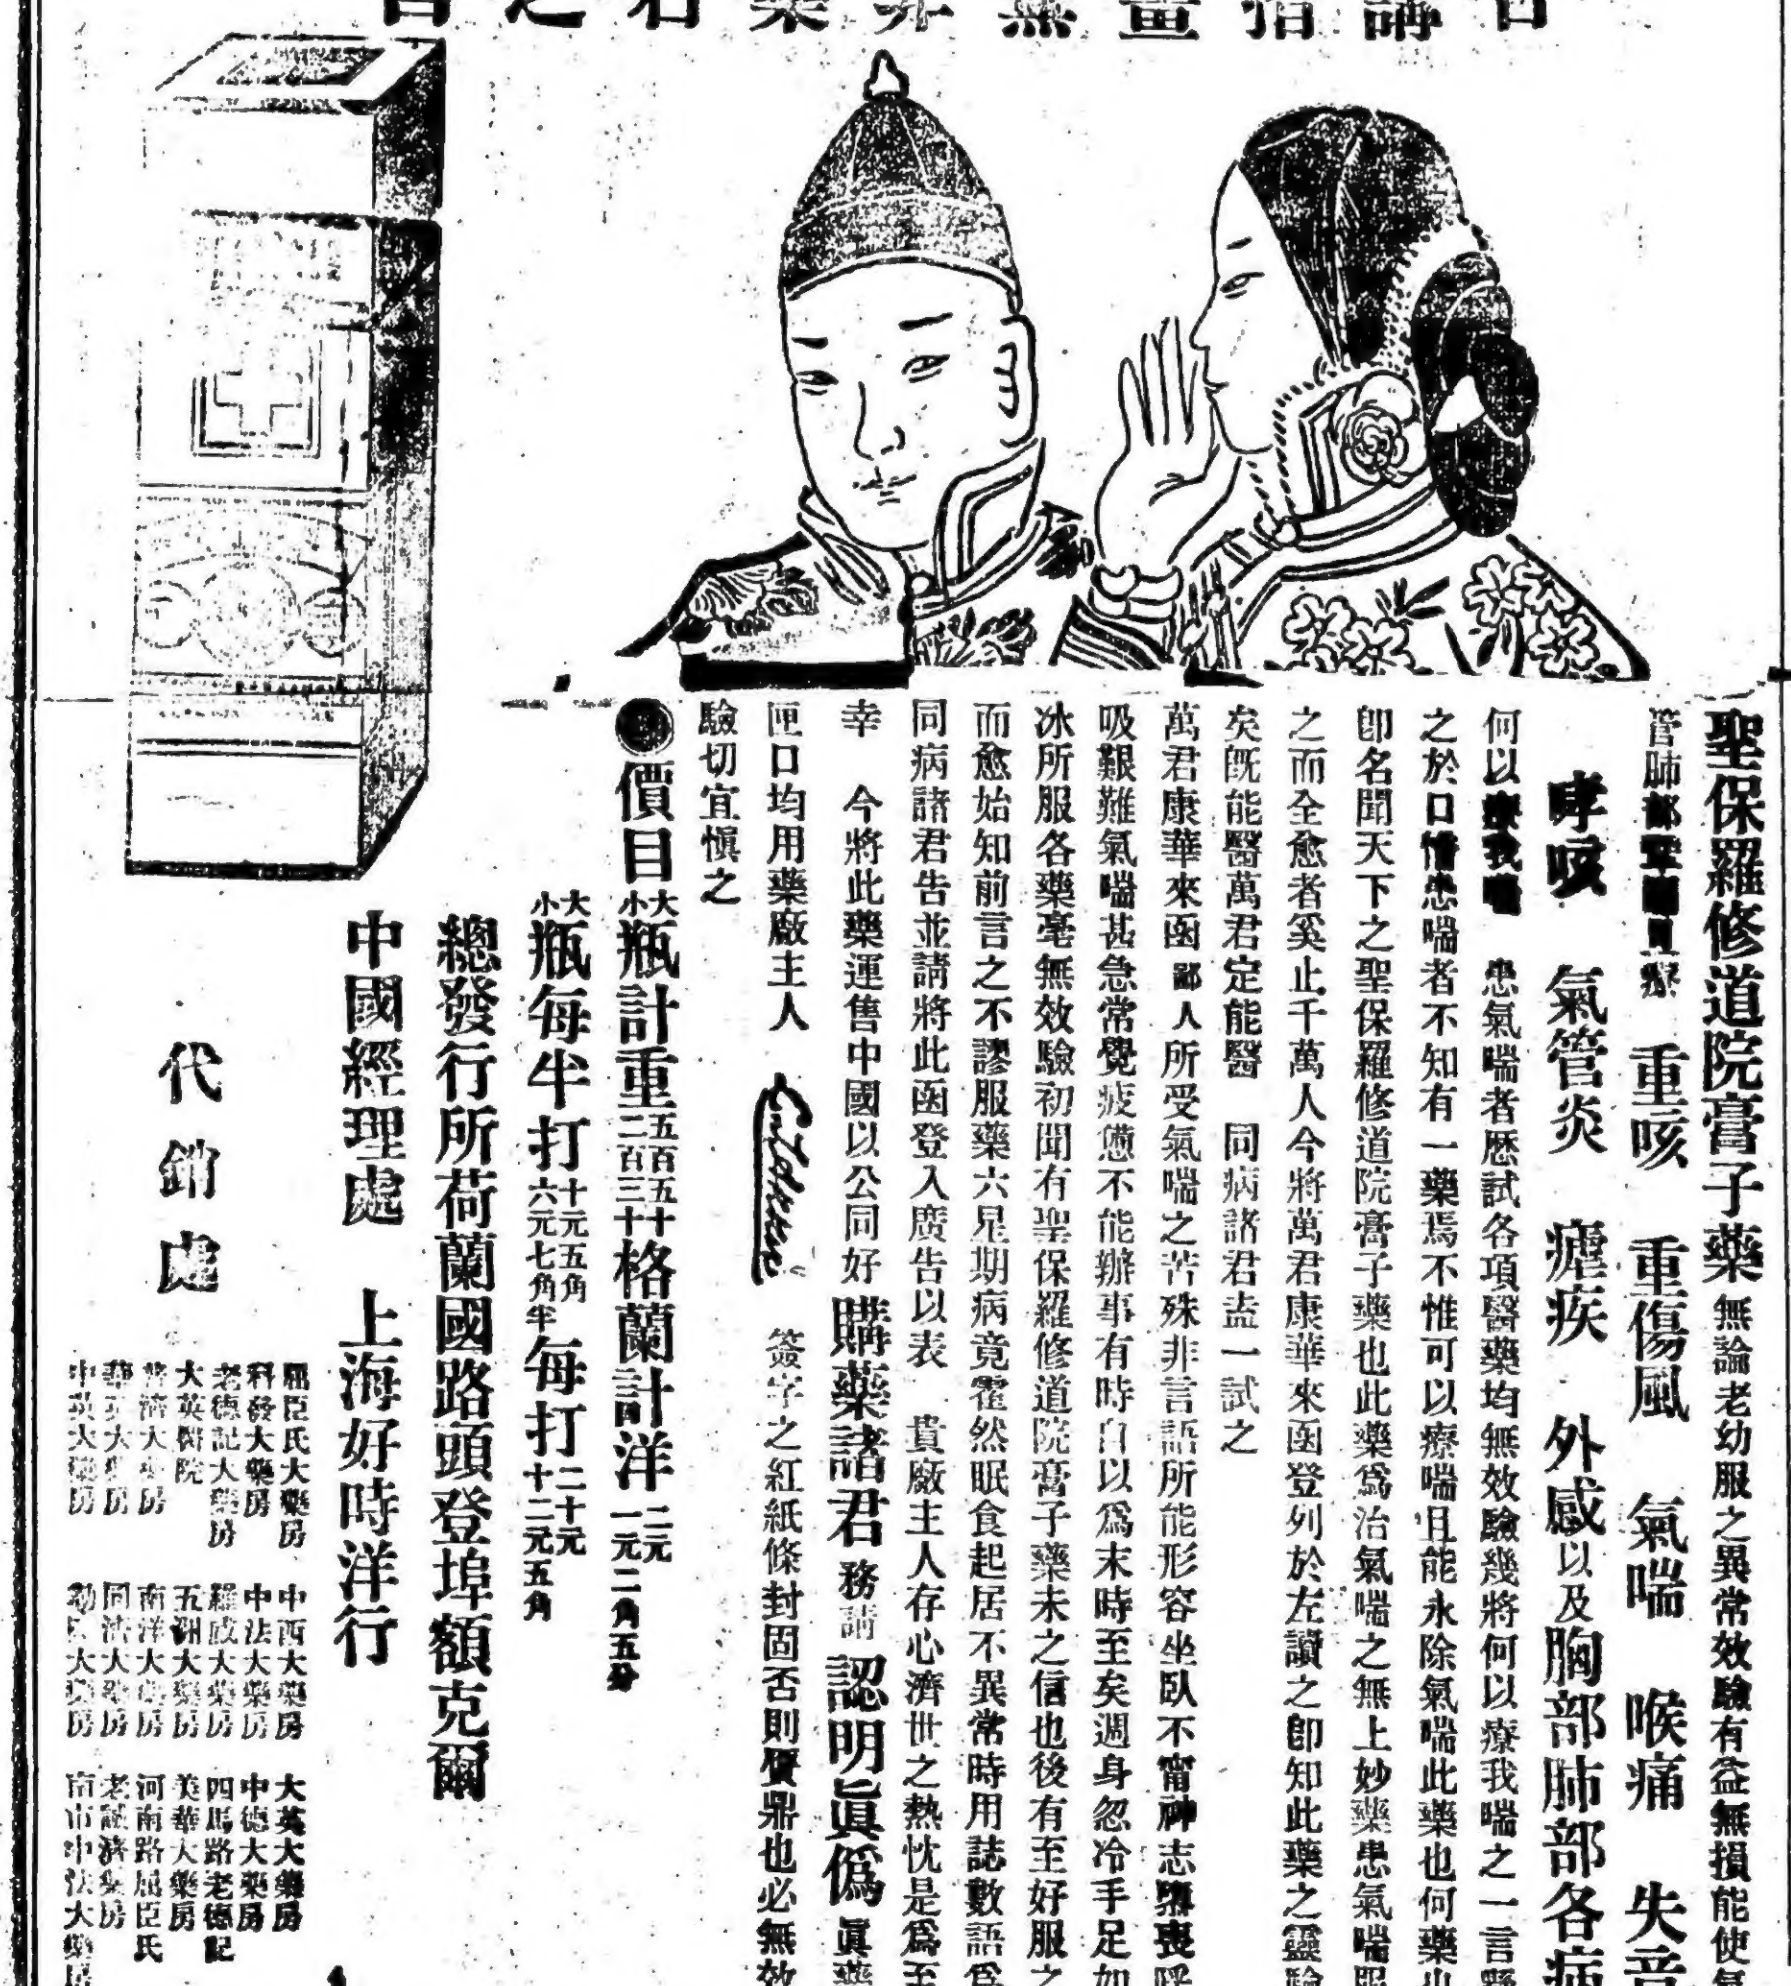 聖保羅修道院膏子藥 無論老幼服之異常效驗有益無損能使
管肺部 療 重咳 重傷風 氣喘 喉痛 失音
哮咳 氣管炎 瘧疾 外感以及胸部肺部各病
何以療我喘 患氣喘者歷試各項醫藥均無效驗幾將何以療我喘之一言懸
之於口惜患喘者不知有一藥焉不惟可以療喘且能永除氣喘此藥也何藥也
卽名聞天下之聖保羅修道院膏子藥也此藥爲治氣喘之無上妙藥患氣喘服
之而全愈者奚止千萬人今將萬君康華來函登列於左讀之卽知此藥之靈驗
矣旣能醫萬君定能醫 同病諸君盍一試之
萬君康華來函 鄙人所受氣喘之苦殊非言語所能形容坐臥不甯神志隳喪呼
吸艱難氣喘甚急常覺疲憊不能辦事有時自以爲末時至矣週身忽冷手足如
冰所服各藥毫無效驗初聞有聖保羅修道院膏子藥未之信也後有至好服之
而愈始知前言之不謬服藥六星期病竟霍然眠食起居不異常時用誌數語爲
同病諸君告並請將此函登入廣告以表 貴廠主人存心濟世之熱忱是爲至
幸 今將此藥運售中國以公同好 購藥諸君 務請 認明眞僞 眞藥
匣口均用藥廠主人 簽字之紅紙條封固否則贗鼎也必無效
驗切宜愼之
價目 大瓶計重五百五十格蘭計洋二元
小瓶計重二百三十格蘭計洋一元二角五分
大瓶每半打十元五角每打二十元
小瓶每半打六元七角半每打十二元五角
總發行所荷蘭國路頭登埠額克爾
中國經理處 上海好時洋行
代銷處
屈臣氏大藥房 中西大藥房 大英大藥房
科發大藥房 中法大藥房 中德大藥房
老德記大藥房 羅威大藥房 四馬路老德記
大英醫院 五洲大藥房 美華大藥房
普濟大藥房 南洋大藥房 河南路屈臣氏
華英大藥房 同濟大藥房 藥房
中英大藥房 大藥房 南市中法大藥房